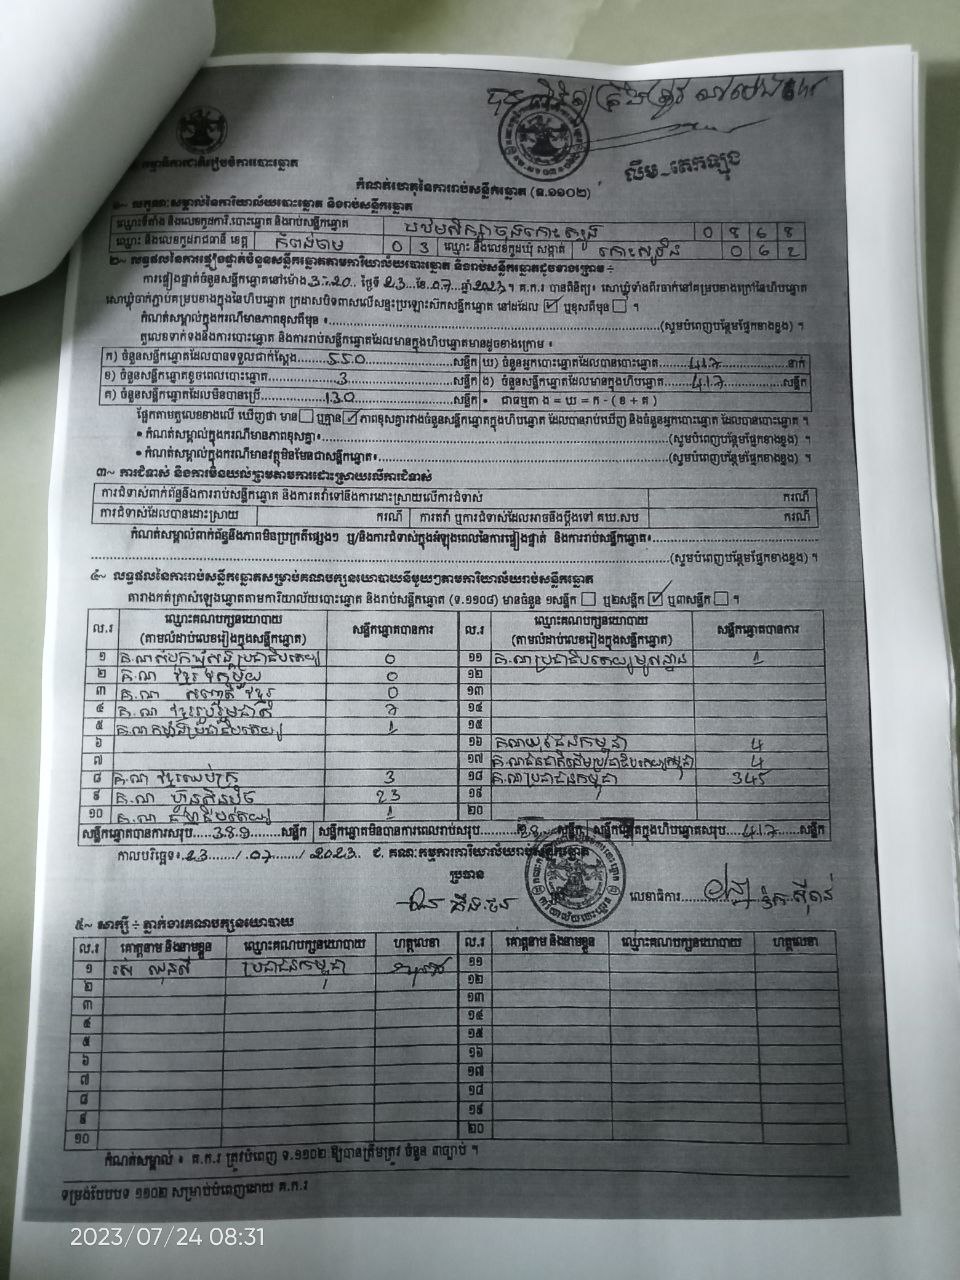 គណៈកម្មាធិការជាតិរៀបចំការបោះឆ្នោត
លឹម~តេកឡុង
កំណត់ហេតុនៃការរាប់សន្លឹកឆ្នោត (ទ.១១០២)
១~ លក្ខណៈសម្គាល់នៃការិយាល័យបោះឆ្នោត និងរាប់សន្លឹកឆ្នោត
ឈ្មោះទីតាំង និងលេខកូដការិ.បោះឆ្នោត និងរាប់សន្លឹកឆ្នោត 0 8 6 8
ឈ្មោះ និងលេខកូដរាជធានី ខេត្ត កំពង់ចាម 0 3 ឈ្មោះ និងលេខកូដឃុំ សង្កាត់ 0 6 2
២~ លទ្ធផលនៃការផ្ទៀងផ្ទាត់ចំនួនសន្លឹកឆ្នោតតាមការិយាល័យបោះឆ្នោត និងរាប់សន្លឹកឆ្នោតដូចខាងក្រោម ៖
ការផ្ទៀងផ្ទាត់ចំនួនសន្លឹកឆ្នោតនៅម៉ោង 3:20 ថ្ងៃទី 23 ខែ 07 ឆ្នាំ 2023។ គ.ក.រ បានពិនិត្យ៖ សោឃ្លុំទាំងពីរចាក់នៅគម្របខាងក្រៅនៃហិបឆ្នោត
សោឃ្លុំចាក់ភ្ជាប់គម្របខាងក្នុងនៃហិបឆ្នោត ក្រដាសបិទពាសលើសន្ទះប្រឡោះស៊កសន្លឹកឆ្នោត នៅដដែល ☑ ឬខុសពីមុន ☐ ។
កំណត់សម្គាល់ក្នុងករណីមានភាពខុសពីមុន ៖ (សូមបំពេញបន្ថែមផ្នែកខាងខ្នង) ។
តួលេខទាក់ទងនឹងការបោះឆ្នោត និងការរាប់សន្លឹកឆ្នោតដែលមានក្នុងហិបឆ្នោតមានដូចខាងក្រោម ៖
ក) ចំនួនសន្លឹកឆ្នោតដែលបានទទួលជាក់ស្តែង 550 សន្លឹក ឃ) ចំនួនអ្នកបោះឆ្នោតដែលបានបោះឆ្នោត 417 នាក់
ខ) ចំនួនសន្លឹកឆ្នោតខូចពេលបោះឆ្នោត 3 សន្លឹក ង) ចំនួនសន្លឹកឆ្នោតដែលមានក្នុងហិបឆ្នោត 417 សន្លឹក
គ) ចំនួនសន្លឹកឆ្នោតដែលមិនបានប្រើ 130 សន្លឹក • ជាធម្មតា ង = ឃ = ក - ( ខ + គ )
ផ្អែកតាមតួលេខខាងលើ ឃើញថា មាន ☐ ឬគ្មាន ☑ ភាពខុសគ្នារវាងចំនួនសន្លឹកឆ្នោតក្នុងហិបឆ្នោត ដែលបានរាប់ឃើញ និងចំនួនអ្នកបោះឆ្នោត ដែលបានបោះឆ្នោត ។
• កំណត់សម្គាល់ក្នុងករណីមានភាពខុសគ្នា៖ (សូមបំពេញបន្ថែមផ្នែកខាងខ្នង) ។
• កំណត់សម្គាល់ក្នុងករណីមានវត្ថុមិនមែនជាសន្លឹកឆ្នោត៖ (សូមបំពេញបន្ថែមផ្នែកខាងខ្នង) ។
៣~ ការជំទាស់ និងការមិនយល់ព្រមតាមការដោះស្រាយលើការជំទាស់
ការជំទាស់ពាក់ព័ន្ធនឹងការរាប់សន្លឹកឆ្នោត និងការតវ៉ាទៅនឹងការដោះស្រាយលើការជំទាស់ ករណី
ការជំទាស់ដែលបានដោះស្រាយ ករណី ការតវ៉ា ឬការជំទាស់ដែលអាចនឹងប្តឹងទៅ គឃ.សប ករណី
កំណត់សម្គាល់ពាក់ព័ន្ធនឹងភាពមិនប្រក្រតីផ្សេងៗ ឬ/និងការជំទាស់ក្នុងអំឡុងពេលនៃការផ្ទៀងផ្ទាត់ និងការរាប់សន្លឹកឆ្នោត៖
(សូមបំពេញបន្ថែមផ្នែកខាងខ្នង) ។
៤~ លទ្ធផលនៃការរាប់សន្លឹកឆ្នោតសម្រាប់គណបក្សនយោបាយនីមួយៗតាមការិយាល័យរាប់សន្លឹកឆ្នោត
តារាងកត់ត្រាសំឡេងឆ្នោតតាមការិយាល័យបោះឆ្នោត និងរាប់សន្លឹកឆ្នោត (ទ.១១០៨) មានចំនួន ១សន្លឹក ☐ ឬ២សន្លឹក ☑ ឬ៣សន្លឹក ☐ ។
ល.រ ឈ្មោះគណបក្សនយោបាយ (តាមលំដាប់លេខរៀងក្នុងសន្លឹកឆ្នោត) សន្លឹកឆ្នោតបានការ ល.រ ឈ្មោះគណបក្សនយោបាយ (តាមលំដាប់លេខរៀងក្នុងសន្លឹកឆ្នោត) សន្លឹកឆ្នោតបានការ
១ 0 ១១ 1
២ គ.ណ ខ្មែរ 0 ១២
៣ គ.ណ 0 ១៣
៤ គ.ណ ខ្មែររួបរួមជាតិ 7 ១៤
៥ 1 ១៥
៦ ១៦ 4
៧ ១៧ 4
៨ គ.ណ ខ្មែរឈប់ក្រ 3 ១៨ គ.ណប្រជាជនកម្ពុជា 345
៩ គ.ណ ហ្វ៊ុនស៊ិនប៉ិច 23 ១៩
១០ គ.ណ 1 ២០
សន្លឹកឆ្នោតបានការសរុប 389 សន្លឹក សន្លឹកឆ្នោតមិនបានការពេលរាប់សរុប សន្លឹក សន្លឹកឆ្នោតក្នុងហិបឆ្នោតសរុប 417 សន្លឹក
កាលបរិច្ឆេទ៖ 23 / 07 / 2023 ជ. គណៈកម្មការការិយាល័យរាប់សន្លឹកឆ្នោត
ប្រធាន
លេខាធិការ
៥~ សាក្សី ៖ ភ្នាក់ងារគណបក្សនយោបាយ
ល.រ គោត្តនាម និងនាមខ្លួន ឈ្មោះគណបក្សនយោបាយ ហត្ថលេខា ល.រ គោត្តនាម និងនាមខ្លួន ឈ្មោះគណបក្សនយោបាយ ហត្ថលេខា
១ ប្រជាជនកម្ពុជា ១១
២ ១២
៣ ១៣
៤ ១៤
៥ ១៥
៦ ១៦
៧ ១៧
៨ ១៨
៩ ១៩
១០ ២០
កំណត់សម្គាល់ ៖ គ.ក.រ ត្រូវបំពេញ ទ.១១០២ ឱ្យបានត្រឹមត្រូវ ចំនួន ៣ច្បាប់ ។
ទម្រង់បែបបទ ១១០២ សម្រាប់បំពេញដោយ គ.ក.រ
2023/07/24 08:31